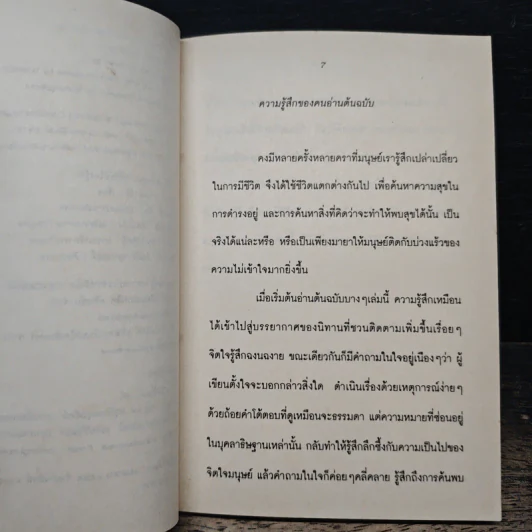 7
ความรู้สึกของคนอ่านต้นฉบับ
คงมีหลายครั้งหลายคราที่มนุษย์เรารู้สึกเปล่าเปลี่ยว
ในการมีชีวิต จึงได้ใช้ชีวิตแตกต่างกันไป เพื่อค้นหาความสุขใน
การดำรงอยู่ และการค้นหาสิ่งที่คิดว่าจะทำให้พบสุขได้นั้น เป็น
จริงได้แน่ละหรือ หรือเป็นเพียงมายาให้มนุษย์ติดกับบ่วงแร้วของ
ความไม่เข้าใจมากยิ่งขึ้น
เมื่อเริ่มต้นอ่านต้นฉบับบางๆเล่มนี้ ความรู้สึกเหมือน
ได้เข้าไปสู่บรรยากาศของนิทานที่ชวนติดตามเพิ่มขึ้นเรื่อยๆ
จิตใจรู้สึกฉงนฉงาย ขณะเดียวกันก็มีคำถามในใจอยู่เนืองๆว่า ผู้
เขียนตั้งใจจะบอกกล่าวสิ่งใด ดำเนินเรื่องด้วยเหตุการณ์ง่ายๆ
ด้วยถ้อยคำโต้ตอบที่ดูเหมือนจะธรรมดา แต่ความหมายที่ซ่อนอยู่
ในบุคลาธิษฐานเหล่านั้น กลับทำให้รู้สึกลึกซึ้งกับความเป็นไปของ
จิตใจมนุษย์ แล้วคำถามในใจก็ค่อยๆคลี่คลาย รู้สึกถึงการค้นพบ